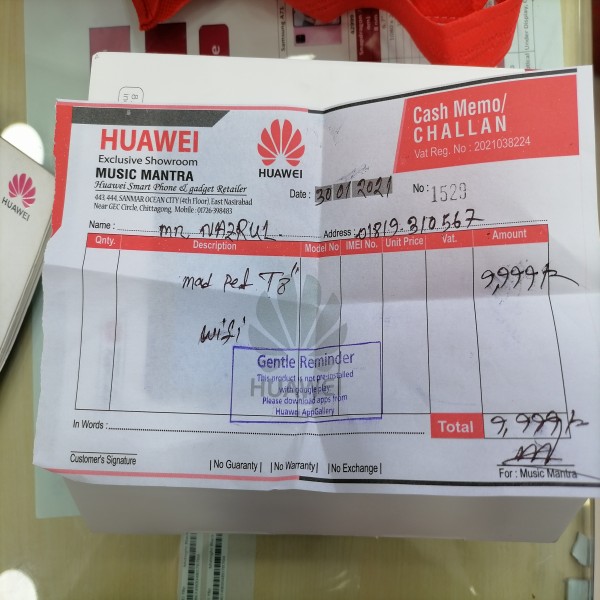 HUAWEI
Exclusive Showroom
MUSIC MANTRA
Huawei Smart Phone & gadget Retailer
443, 444, SANMAR OCEAN CITY (4th Floor), East Nasirabad
Near GEC Circle, Chittagong, Mobile : 01726-398483
HUAWEI
Cash Memo/
CHALLAN
Vat Reg. No : 2021038224
Date : 30 01 2021
No : 1529
Name : MR. NAZRUL.
Address : 01819-310567
Qnty. Description Model No IMEI No. Unit Price Vat. Amount
mad ped T8" 9,999/-
wifi
HUAWEI
Gentle Reminder
This product is not pre-installed
with google play
Please download apps from
Huawei AppGallery
In Words : Total 9,999/-
Customer's Signature
| No Guaranty | No Warranty | No Exchange |
For : Music Mantra
HUAWEI